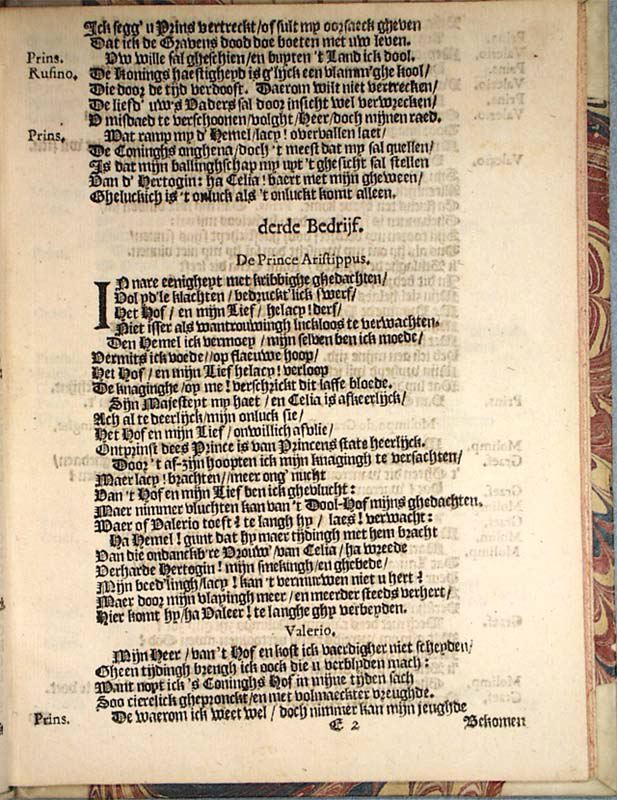 Ick segg' u Prins vertreckt/of sult my oorsaeck gheven
Dat ick de Gravens dood doe boeten met uw leven.
Prins. Uw wille sal gheschien/en buyten 't Land ick dool.
Rufino. De Konings haestigheyd is g'lyck een vlamm'ghe kool/
Die door de tijd verdooft. Daerom wilt niet vertrecken/
De liefd' uw's Vaders sal door insicht wel verwrecken/
U misdaed te verschoonen/volght/Heer/doch mijnen raed.
Prins. Wat ramp my d' Hemel/lacy! overvallen laet/
De Coninghs onghena/doch 't meest dat my sal quellen/
Is dat mijn ballinghschap my uyt 't ghesicht sal stellen
Van d' Hertogin: ha Celia! baert met mijn gheween/
Gheluckich is 't onluck als 't onluckt komt alleen.
derde Bedrijf.
De Prince Aristippus.
In nare eenigheyt met kribbighe ghedachten/
Vol yd'le klachten/bedruckt'lick swerf/
Het Hof/en mijn Lief/helacy! derf/
Niet isser als wantrouwingh luckloos te verwachten.
Den Hemel ick vermoey/mijn selven ben ick moede/
Vermits ick voede//op flaeuwe hoop/
Het Hof/en mijn Lief helacy! verloop
De knaginghe/op me! verschrickt dit laffe bloede.
Sijn Majesteyt my haet/en Celia is afkeerlijck/
Ach al te deerlijck/mijn onluck sie/
Het Hof en mijn Lief/onwillich afvlie/
Ontprinst dees Prince is van Princens state heerlijck.
Door 't af-zijn hoopten ick mijn knagingh te versachten/
Maer lacy! brachten//meer ong' nucht
Van 't Hof en mijn Lief ben ick ghevlucht:
Maer nimmer vluchten kan van 't Dool-Hof mijns ghedachten.
Waer of Valerio toeft? te langh hy/laes! verwacht:
Ha Hemel! gunt dat hy maer tijdingh met hem bracht
Van die ondanckb're Vrouw/van Celia/ha wreede
Verharde Hertogin! mijn smekingh/en ghebede/
Mijn beed'lingh/lacy! kan 't vermurwen niet u hert?
Maer door mijn vlayingh meer/en meerder steeds verhert/
Hier komt hy/ha Valeer! te langhe ghy verbeyden.
Valerio.
Mijn Heer/van 't Hof en kost ick vaerdigher niet scheyden/
Gheen tijdingh breugh ick oock die u verblyden mach:
Want noyt ick 's Coninghs Hof in mijne tyden sach
Soo cierelick ghepronckt/en met volmaeckter vreughde.
Prins. De waerom ick weet wel/doch nimmer kan mijn jeughde
E 2 Bekomen